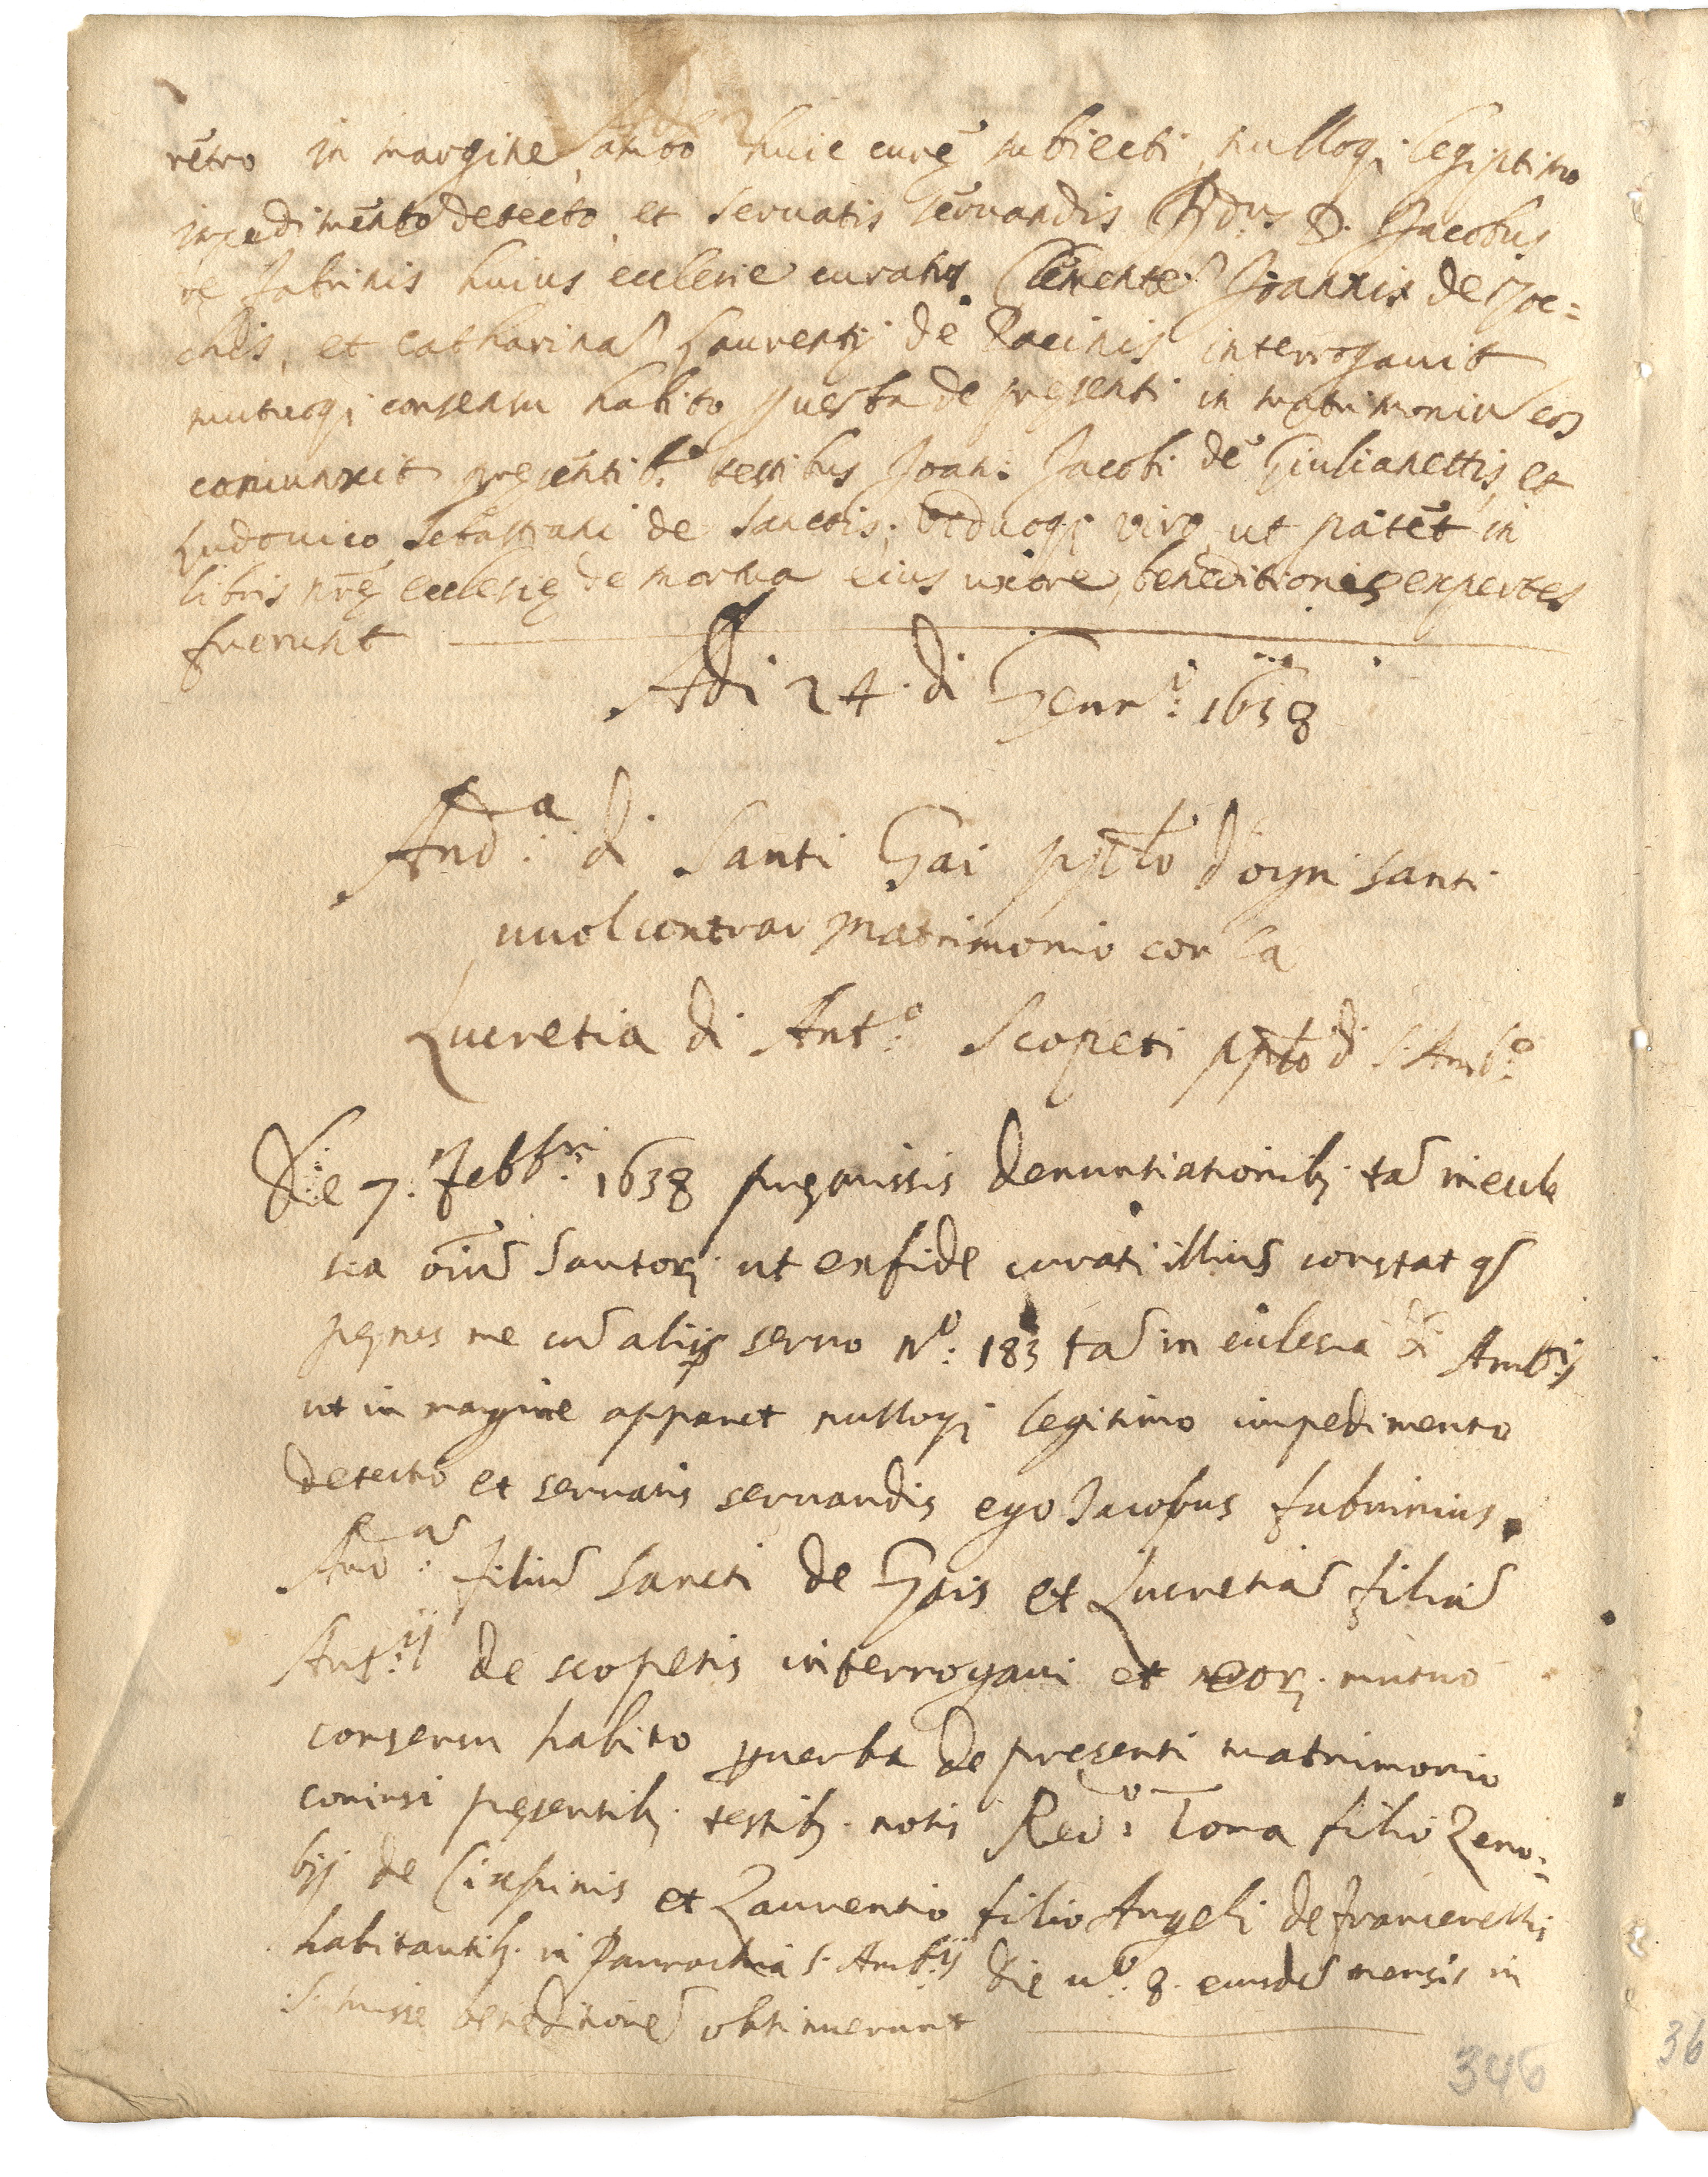 retro in margine, ambo huic curę subiecti, nulloq; legiptimo
inpedimento detecto, et servatis servandis R.dus D. Jacobus
de fabrinis huius ecclesie curatus Clemente Joannis de
chis, et catharinā Laurentij de Pacinis interrogavit
mutuoq; consensu habito p verba de presenti in matrimoniū eos
coniunxit presentib. testibus Joan: Jacobi de Giulianettis, et
Ludovico Sebastiani de Sanctis; viduoq; viro, ut patet in
libris nr̄ę ecclesię de mortua eius uxore, beneditionis expertes
fuerunt
Adi 24 di Genr.o 1638
And.a di Santi Gai ppĺo d'ogni santi
vuol contrar matrimonio con la
Lucretia di Ant.o Scopeti ppĺo di S. Amb.o
Die 7. Febbri 1638 pręmissis denuntiationib; tā in eccle
sia oīuȝ Santor; ut ex fide curati illius constat q̄
pęnes me cū alijs servo N.o: 183 tā in ecclesia Amb.ij
ut in margine apparet nulloq; legitimo impedimento
detecto et servatis servandis ego Jacobus fabrinius
And.ā filiū Sancti de Gais et Lucretiā filiā
Ant.ij de scopetis interrogavi et eor; mutuo
consensu habito p verba de presenti matrimonio
coniunsi pręsentib; testib; notis Red.o Toma filio Zeno=
bij de Ciaspinis et Laurentio filio Angeli de francerelli
habitantib; in Parrochia S. Amb.ij die v.o 8. eiusdē mensis in
S. misse beneditionē obtinuerunt
346
36